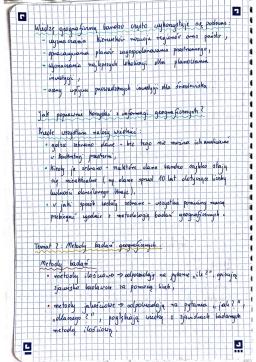 Wiedzę geograficzną bardzo często wykorzystuje się podczas:
- wyznaczania kierunków rozwoju regionów oraz państw,
- opracowywania planów zagospodarowania przestrzennego,
- wyznaczania najlepszych lokalizacji dla planowanych
inwestycji,
- oceny wpływu prowadzonych inwestycji dla środowiska
Jak poprawnie korzystać z informacji geograficznych?
Przede wszystkim należy wiedzieć:
gdzie zebrano dane - bez tego nie można ich
w konkretnej przestrzeni,
kiedy je zebrano - niektóre dane bardzo szybko stają
się nieaktualne (np. dane sprzed 10 lat dotyczące liczby
ludności określonego kraju),
w jaki sposób zostały zebrane - wszystkie pomiary muszą
przebiegać zgodnie z metodologią badań geograficznych.
Temat 2: Metody badań geograficznych
Metody badań
• metody ilościowe → odpowiadają na pytanie „ile?”, opisują
zjawiska badawcze za pomocą liczb,
• metody jakościowe → odpowiadają na pytania „jak?”,
„dlaczego?”, pogłębiają wiedzę o zjawiskach badanych
metodą ilościową.